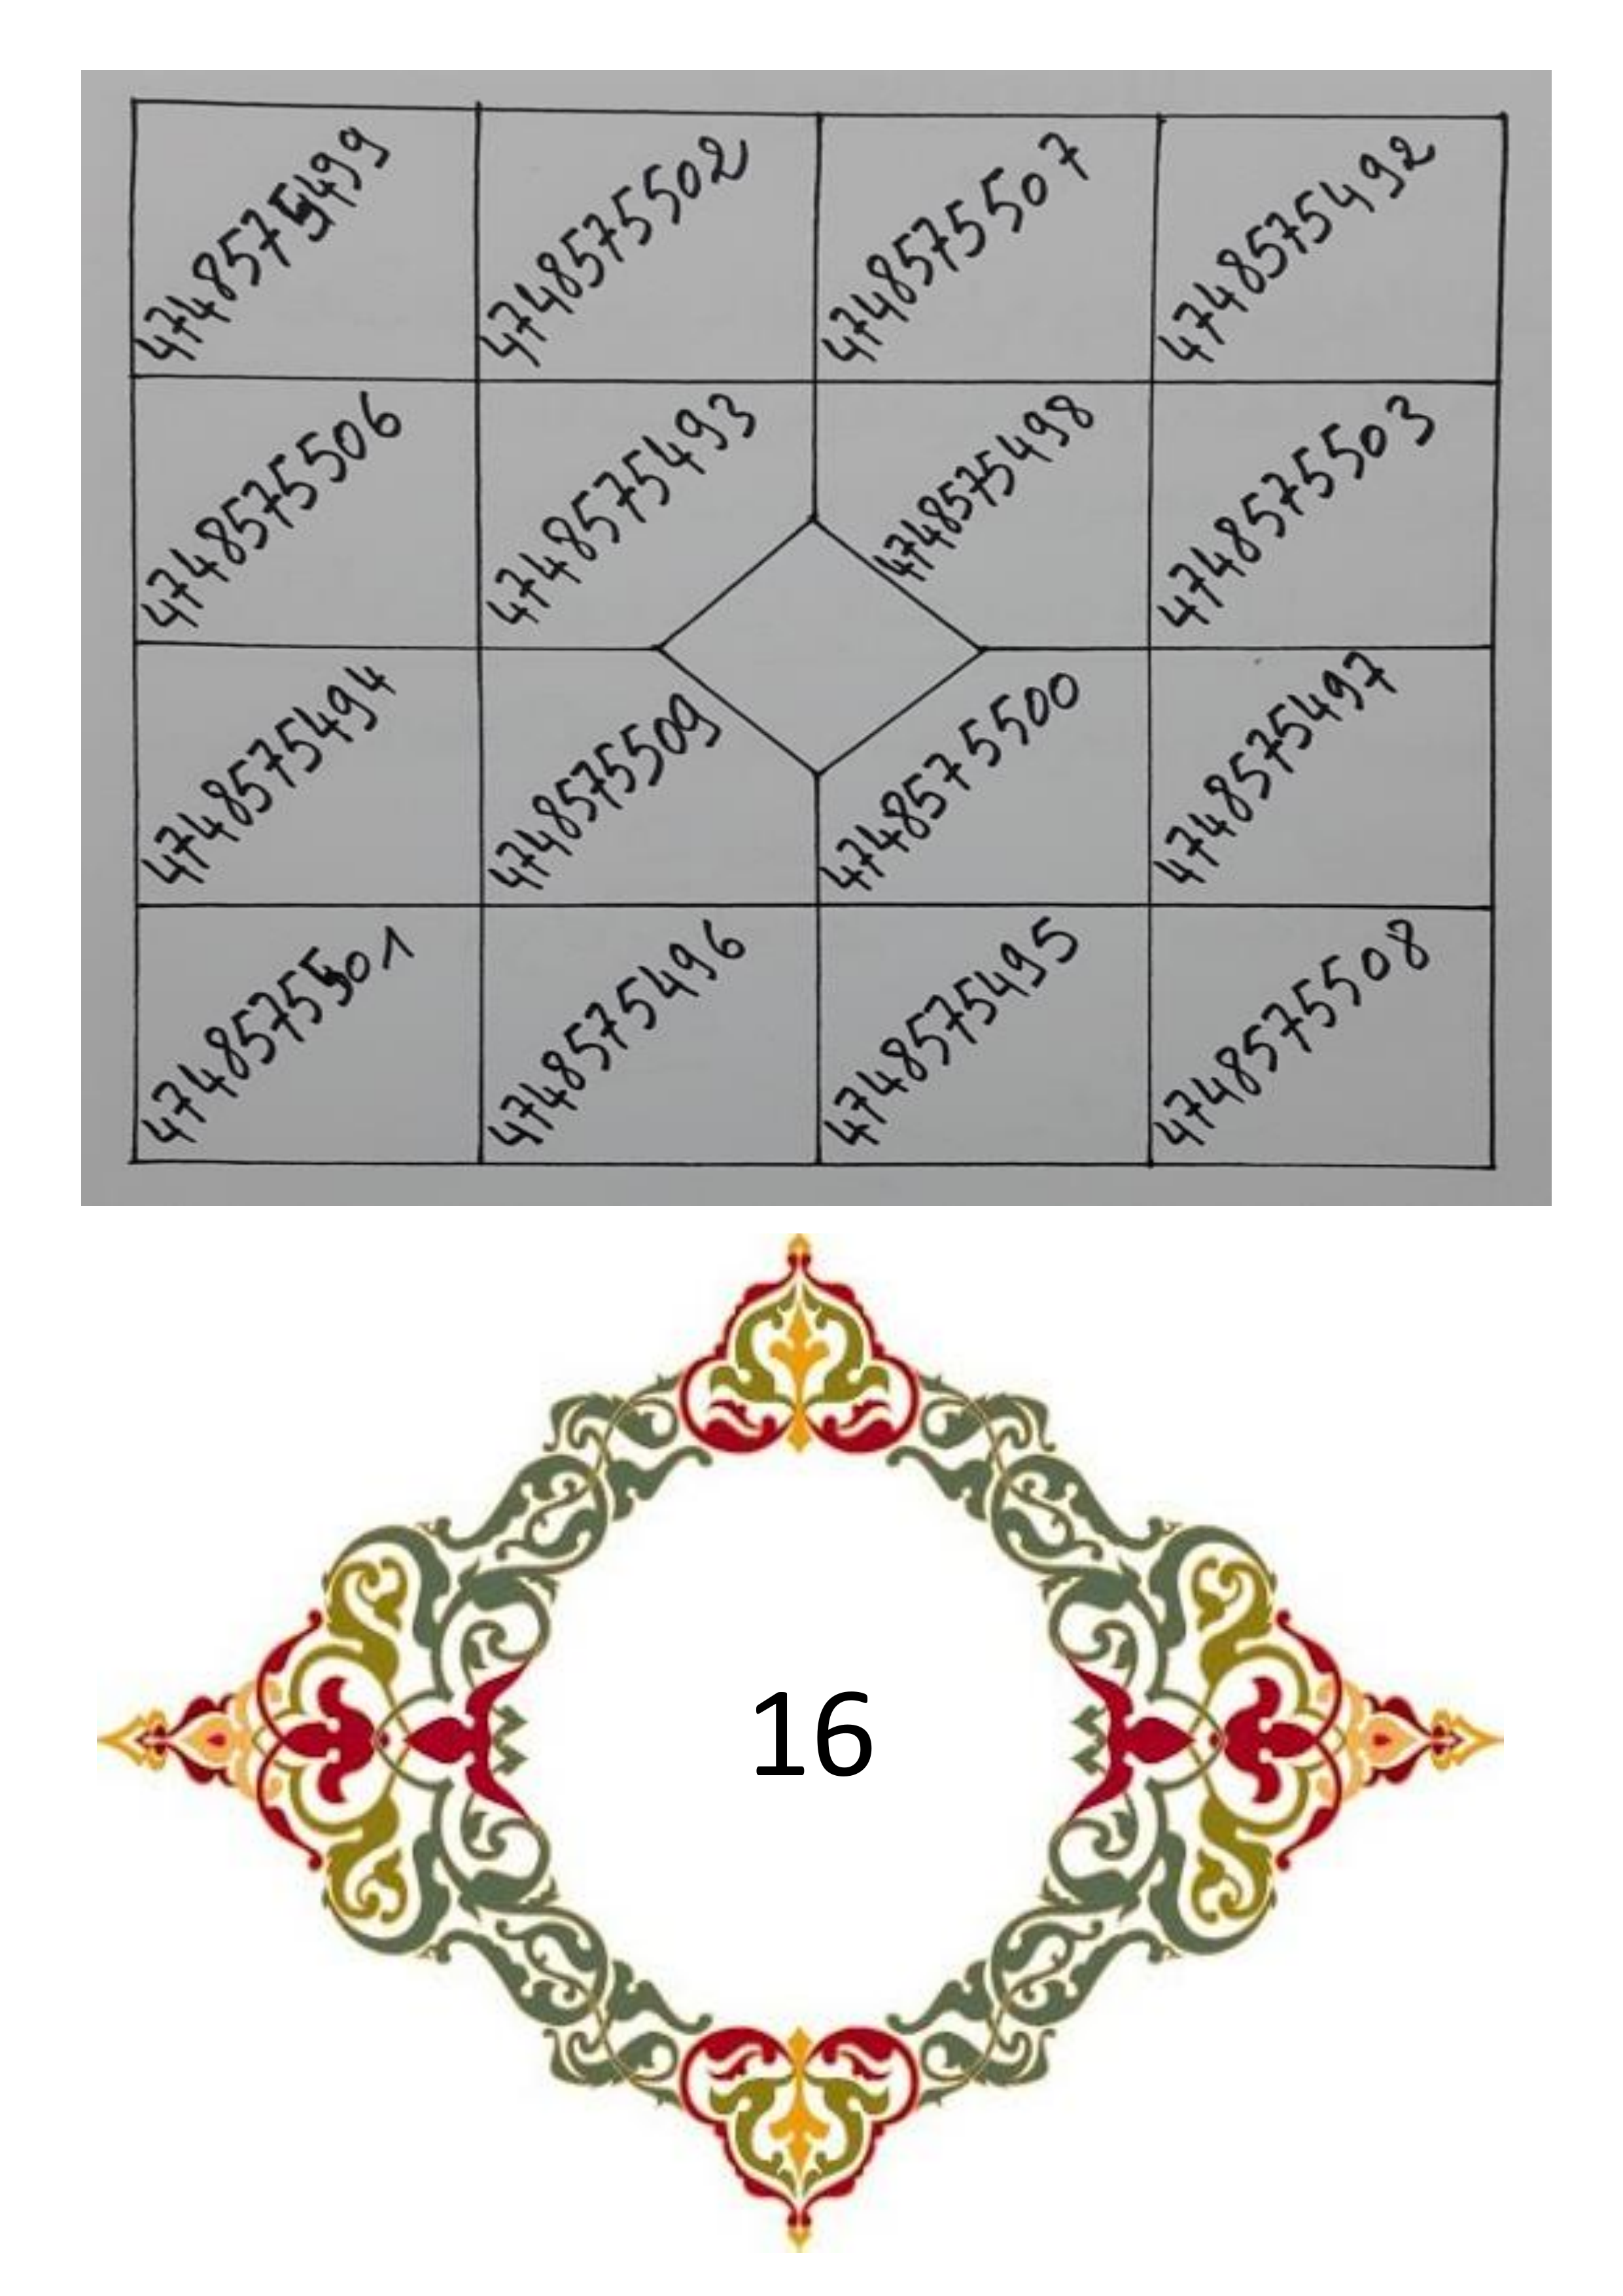 4748575499 4748575502 4748575507 4748575492
4748575506 4748575493 4748575498 4748575503
4748575494 4748575509 4748575500 4748575497
4748575501 4748575496 4748575495 4748575508
16